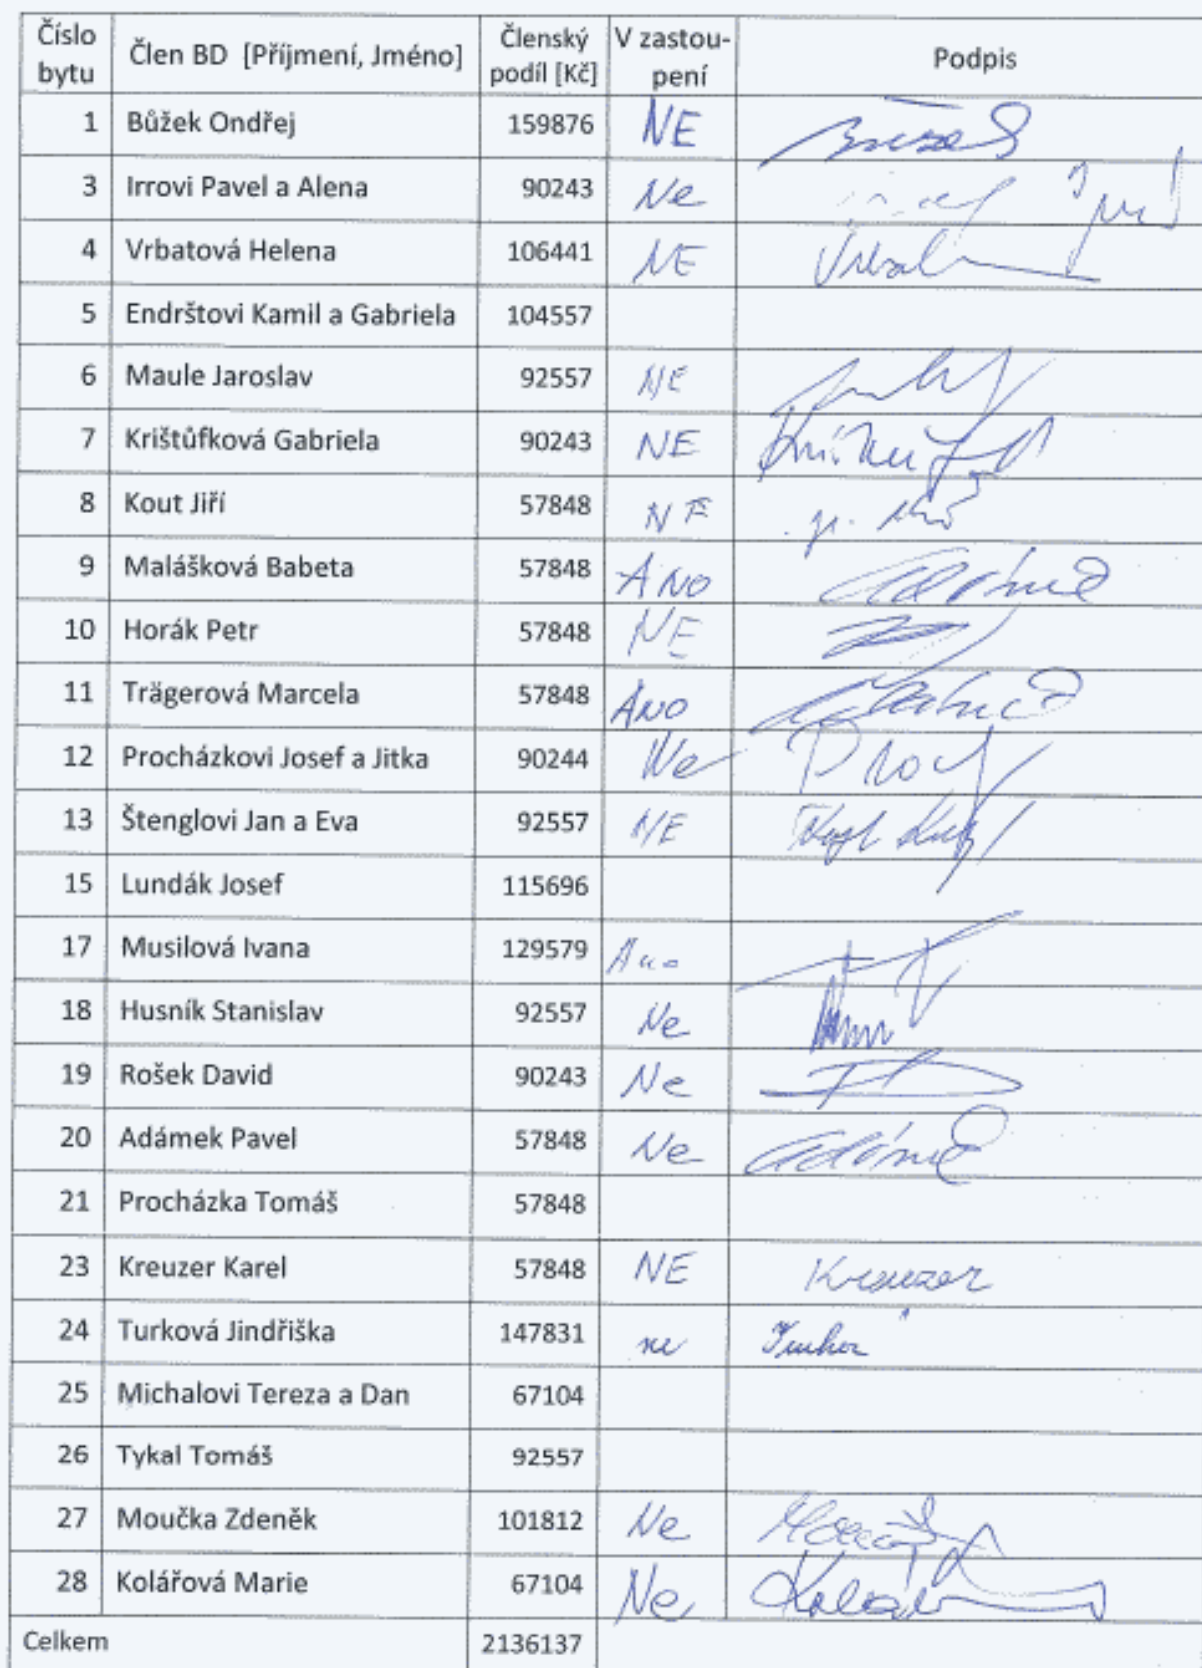 Číslo bytu Člen BD [Příjmení, Jméno] Členský podíl [Kč] V zastou-pení Podpis
1 Bůžek Ondřej 159876 NE
3 Irrovi Pavel a Alena 90243 Ne
4 Vrbatová Helena 106441 NE
5 Endrštovi Kamil a Gabriela 104557
6 Maule Jaroslav 92557 NE
7 Krištůfková Gabriela 90243 NE
8 Kout Jiří 57848 NE
9 Malášková Babeta 57848 ANO
10 Horák Petr 57848 NE
11 Trägerová Marcela 57848 ANO
12 Procházkovi Josef a Jitka 90244 Ne
13 Štenglovi Jan a Eva 92557 NE
15 Lundák Josef 115696
17 Musilová Ivana 129579 Ano
18 Husník Stanislav 92557 Ne
19 Rošek David 90243 Ne
20 Adámek Pavel 57848 Ne
21 Procházka Tomáš 57848
23 Kreuzer Karel 57848 NE Kreuzer
24 Turková Jindřiška 147831 ne
25 Michalovi Tereza a Dan 67104
26 Tykal Tomáš 92557
27 Moučka Zdeněk 101812 Ne
28 Kolářová Marie 67104 Ne
Celkem 2136137